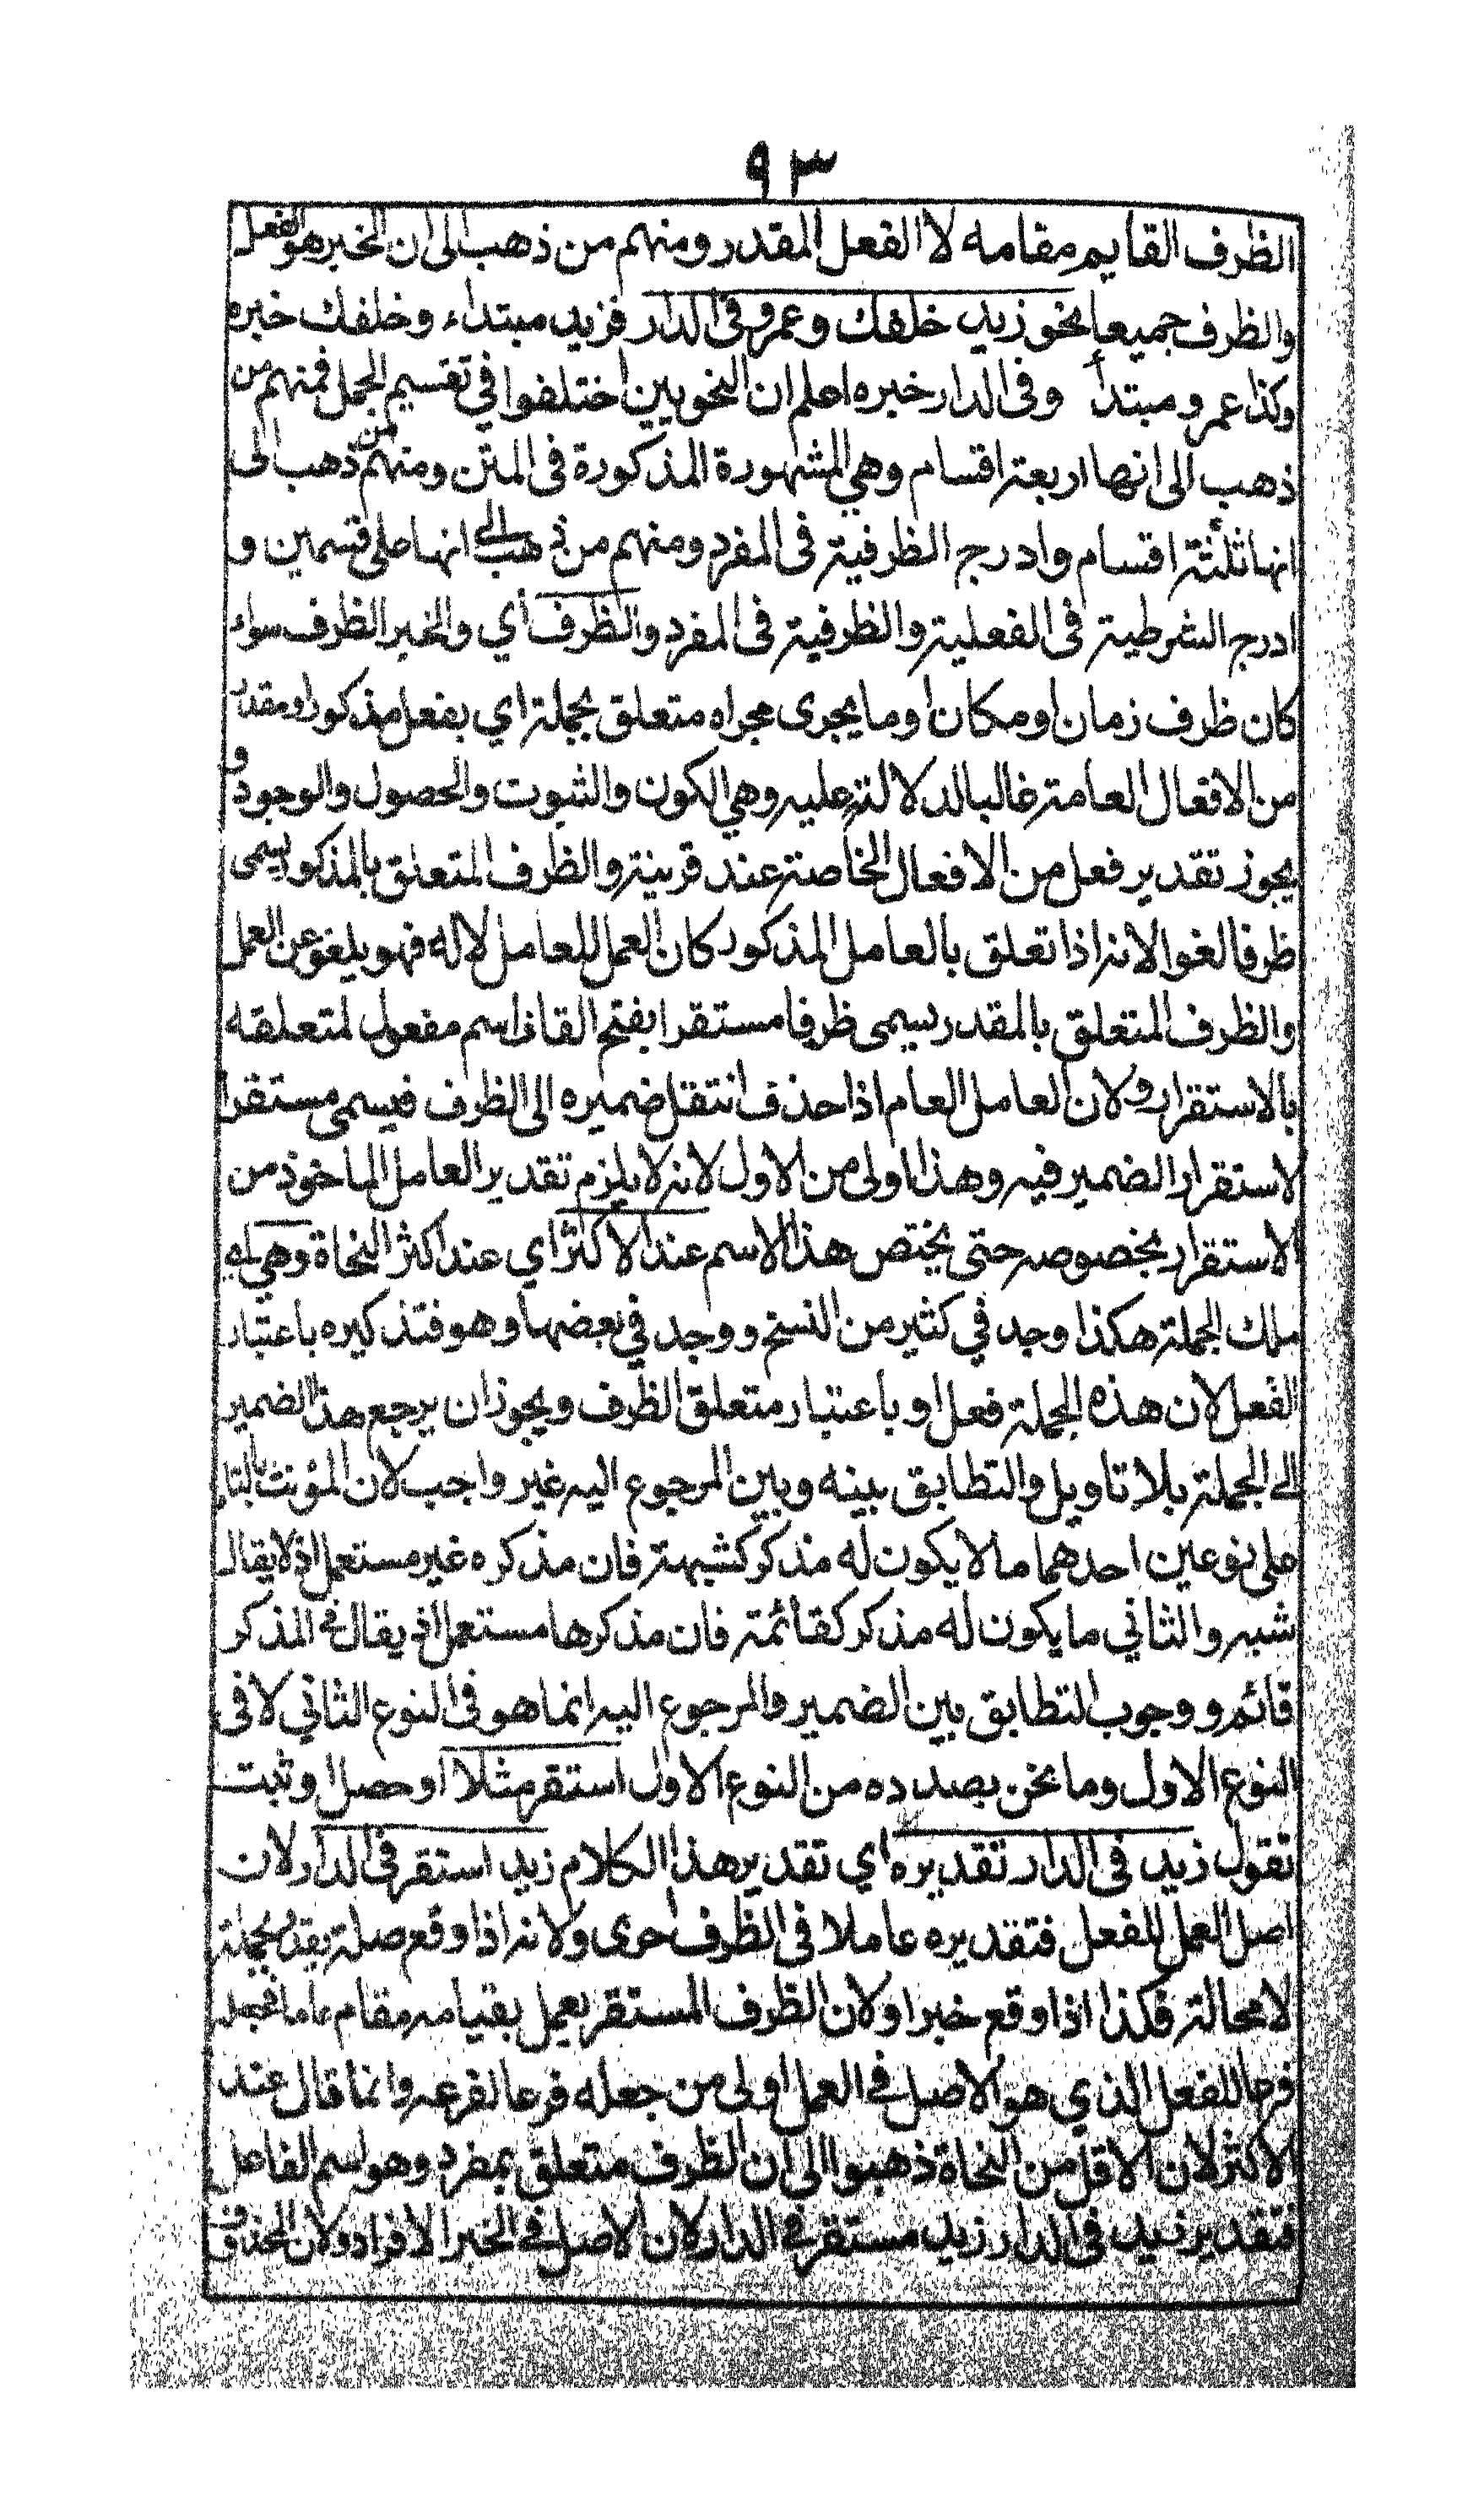 ٩٣
الظرف القايم مقامه لا الفعل المقدر ومنهم من ذهب الى ان الخبر هو الفعل
والظرف جميعا نحو زيد خلفك وعمرو فى الدار فزيد مبتداء وخلفك خبره
وكذا عمرو مبتدأ وفى الدار خبره اعلم ان النحويين اختلفوا في تقسيم الجمل فمنهم من
ذهب الى انها اربعة اقسام وهي المشهورة المذكورة فى المتن ومنهم من ذهب الى
انها ثلثة اقسام وادرج الظرفية فى المفرد ومنهم من ذهب الى انها على قسمين و
ادرج الشرطية فى الفعلية والظرفية فى المفرد والظرف أي والخبر الظرف سواء
كان ظرف زمان او مكان او ما يجرى مجراه متعلق بجملة اي بفعل مذكور او مقدر
من الافعال العامة غالبا لدلالته عليه وهي الكون والثبوت والحصول والوجود و
يجوز تقدير فعل من الافعال الخاصة عند قرينة والظرف المتعلق بالمذكور يسمى
ظرفا لغوا لانه اذا تعلق بالعامل المذكور كان العمل للعامل لا له فهو يلغو عن العمل
والظرف المتعلق بالمقدر يسمى ظرفا مستقرا بفتح القاف اسم مفعول لمتعلقه
بالاستقرار ولان العامل العام اذا حذف انتقل ضميره الى الظرف فيسمى مستقرا
لاستقرار الضمير فيه وهذا اولى من الاول لانه لا يلزم تقدير العامل الماخوذ من
الاستقرار بخصوصه حتى يختص هذا الاسم عند الاكثر اي عند اكثر النحاة وهي اي
ملك الجملة هكذا وجد في كثير من النسخ ووجد في بعضها وهو فتذكيره باعتبار
الفعل لان هذه الجملة فعل او باعتبار متعلق الظرف ويجوز ان يرجع هذا الضمير
الى الجملة بلا تاويل والتطابق بينه وبين المرجوع اليه غير واجب لان المؤنث بالتاء
على نوعين احدهما ما لا يكون له مذكر كشبهة فان مذكره غير مستعمل اذ لا يقال
شبه والثاني ما يكون له مذكر كقائمة فان مذكرها مستعمل اذ يقال في المذكر
قائم ووجوب التطابق بين الضمير والمرجوع اليه انما هو فى النوع الثاني لا فى
النوع الاول وما نحن بصدده من النوع الاول استقر مثلا او حصل او ثبت
تقول زيد فى الدار تقديره اي تقدير هذا الكلام زيد استقر فى الدار لان
اصل العمل للفعل فتقديره عاملا فى الظرف احرى ولانه اذا وقع صلة يقدر بجملة
لا محالة فكذا اذا وقع خبرا ولان الظرف المستقر يعمل بقيامه مقام عامله فجعله
فرعا للفعل الذي هو الاصل في العمل اولى من جعله فرعا لفرعه وانما قال عند
الاكثر لان الاقل من النحاة ذهبوا الى ان الظرف متعلق بمفرد وهو اسم الفاعل
فتقدير زيد فى الدار زيد مستقر في الدار لان الاصل في الخبر الافراد ولان الحذف